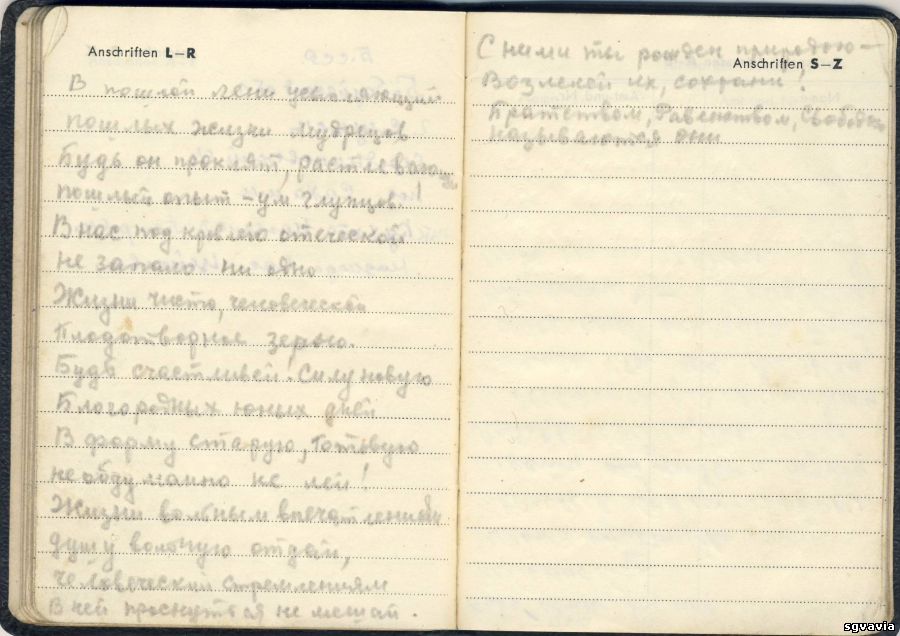 Anschriften L–R
В пошлой лени усыпляющий
пошлых жизни мудрецов
Будь он проклят, растлевающий
пошлый опыт – ум глупцов!
В нас под кровлею отеческой
не запало ни одно
Жизни чисто, человеческой
Плодотворное зерно.
Будь счастливей! Силу новую
Благородных юных дней
В форму старую, готовую
необдуманно не лей!
Жизни вольным впечатлениям
душу вольную отдай,
человеческим стремлениям
В ней проснуться не мешай.
Anschriften S–Z
С ними ты рожден природою –
Возлелей их, сохрани!
Братством, Равенством, Свободою
называются они
sgvavia